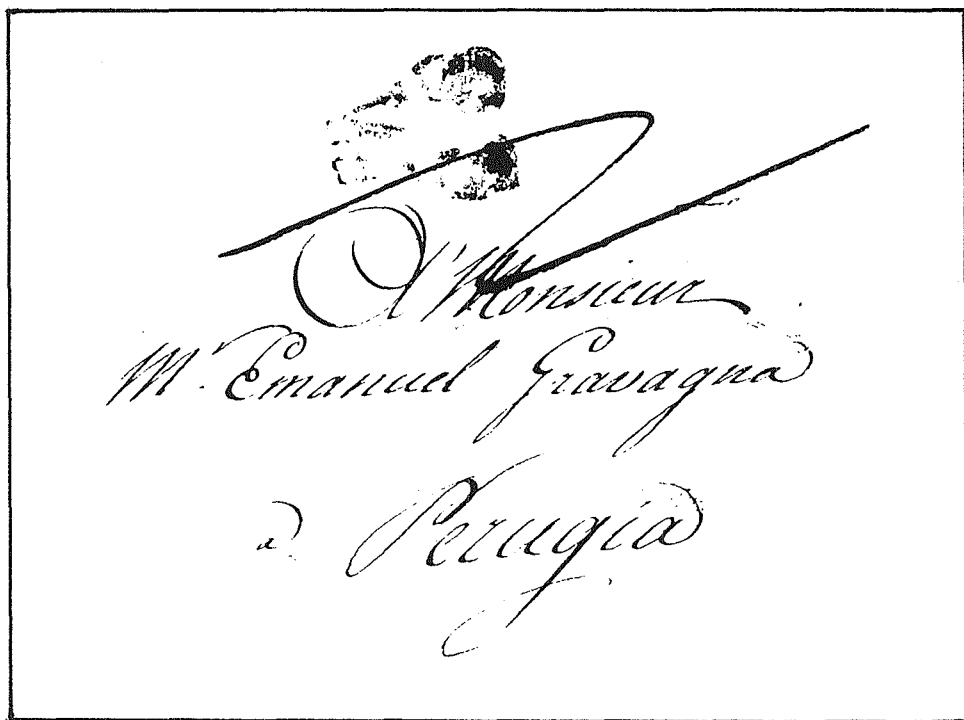 A Monsieur
Mr. Emanuel Gravagna
à Perugia